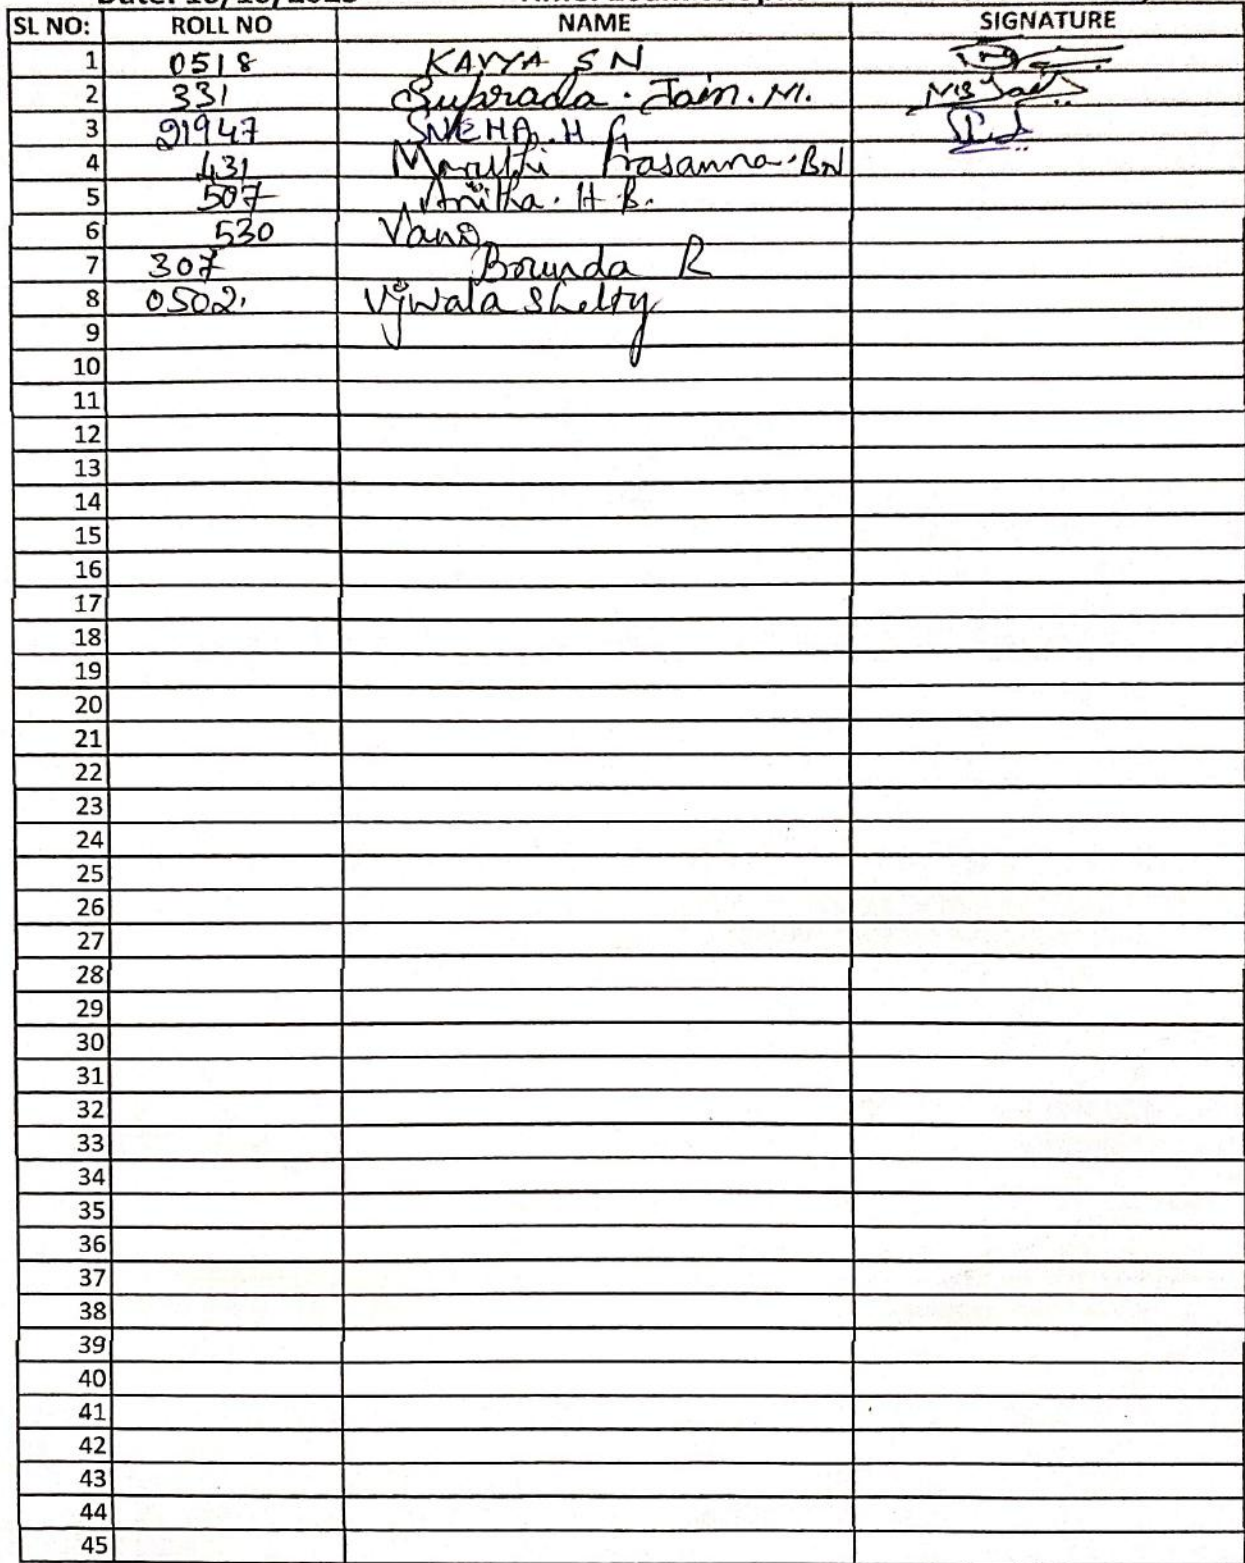 SL NO: ROLL NO NAME SIGNATURE
1 0518 KAVYA S N
2 331 Suprada. Jain. M.
3 21947 SNEHA. H G
4 431 Maruthi Prasanna. BN
5 507 Anitha. H B.
6 530 Vani
7 307 Brunda R
8 0502. Ujwala Shetty
9
10
11
12
13
14
15
16
17
18
19
20
21
22
23
24
25
26
27
28
29
30
31
32
33
34
35
36
37
38
39
40
41
42
43
44
45